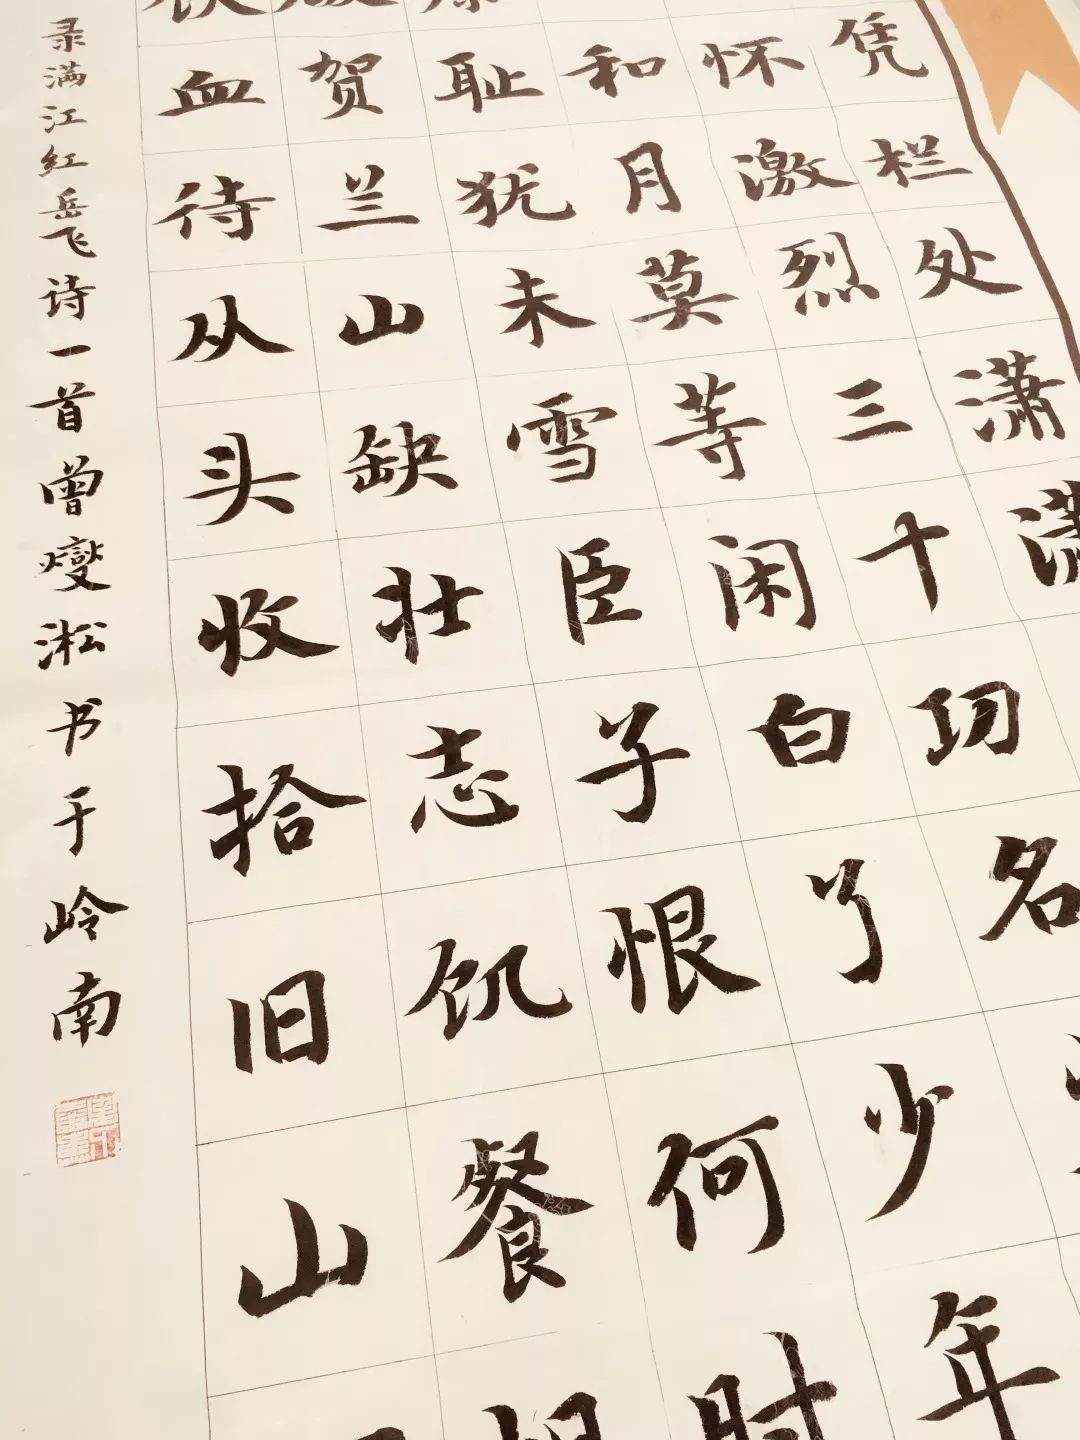 凭栏处潇潇
怀激烈三十功名
和月莫等闲白了少年
耻犹未雪臣子恨何时
贺兰山缺壮志饥餐
血待从头收拾旧山
录满江红岳飞诗一首曾燮淞书于岭南